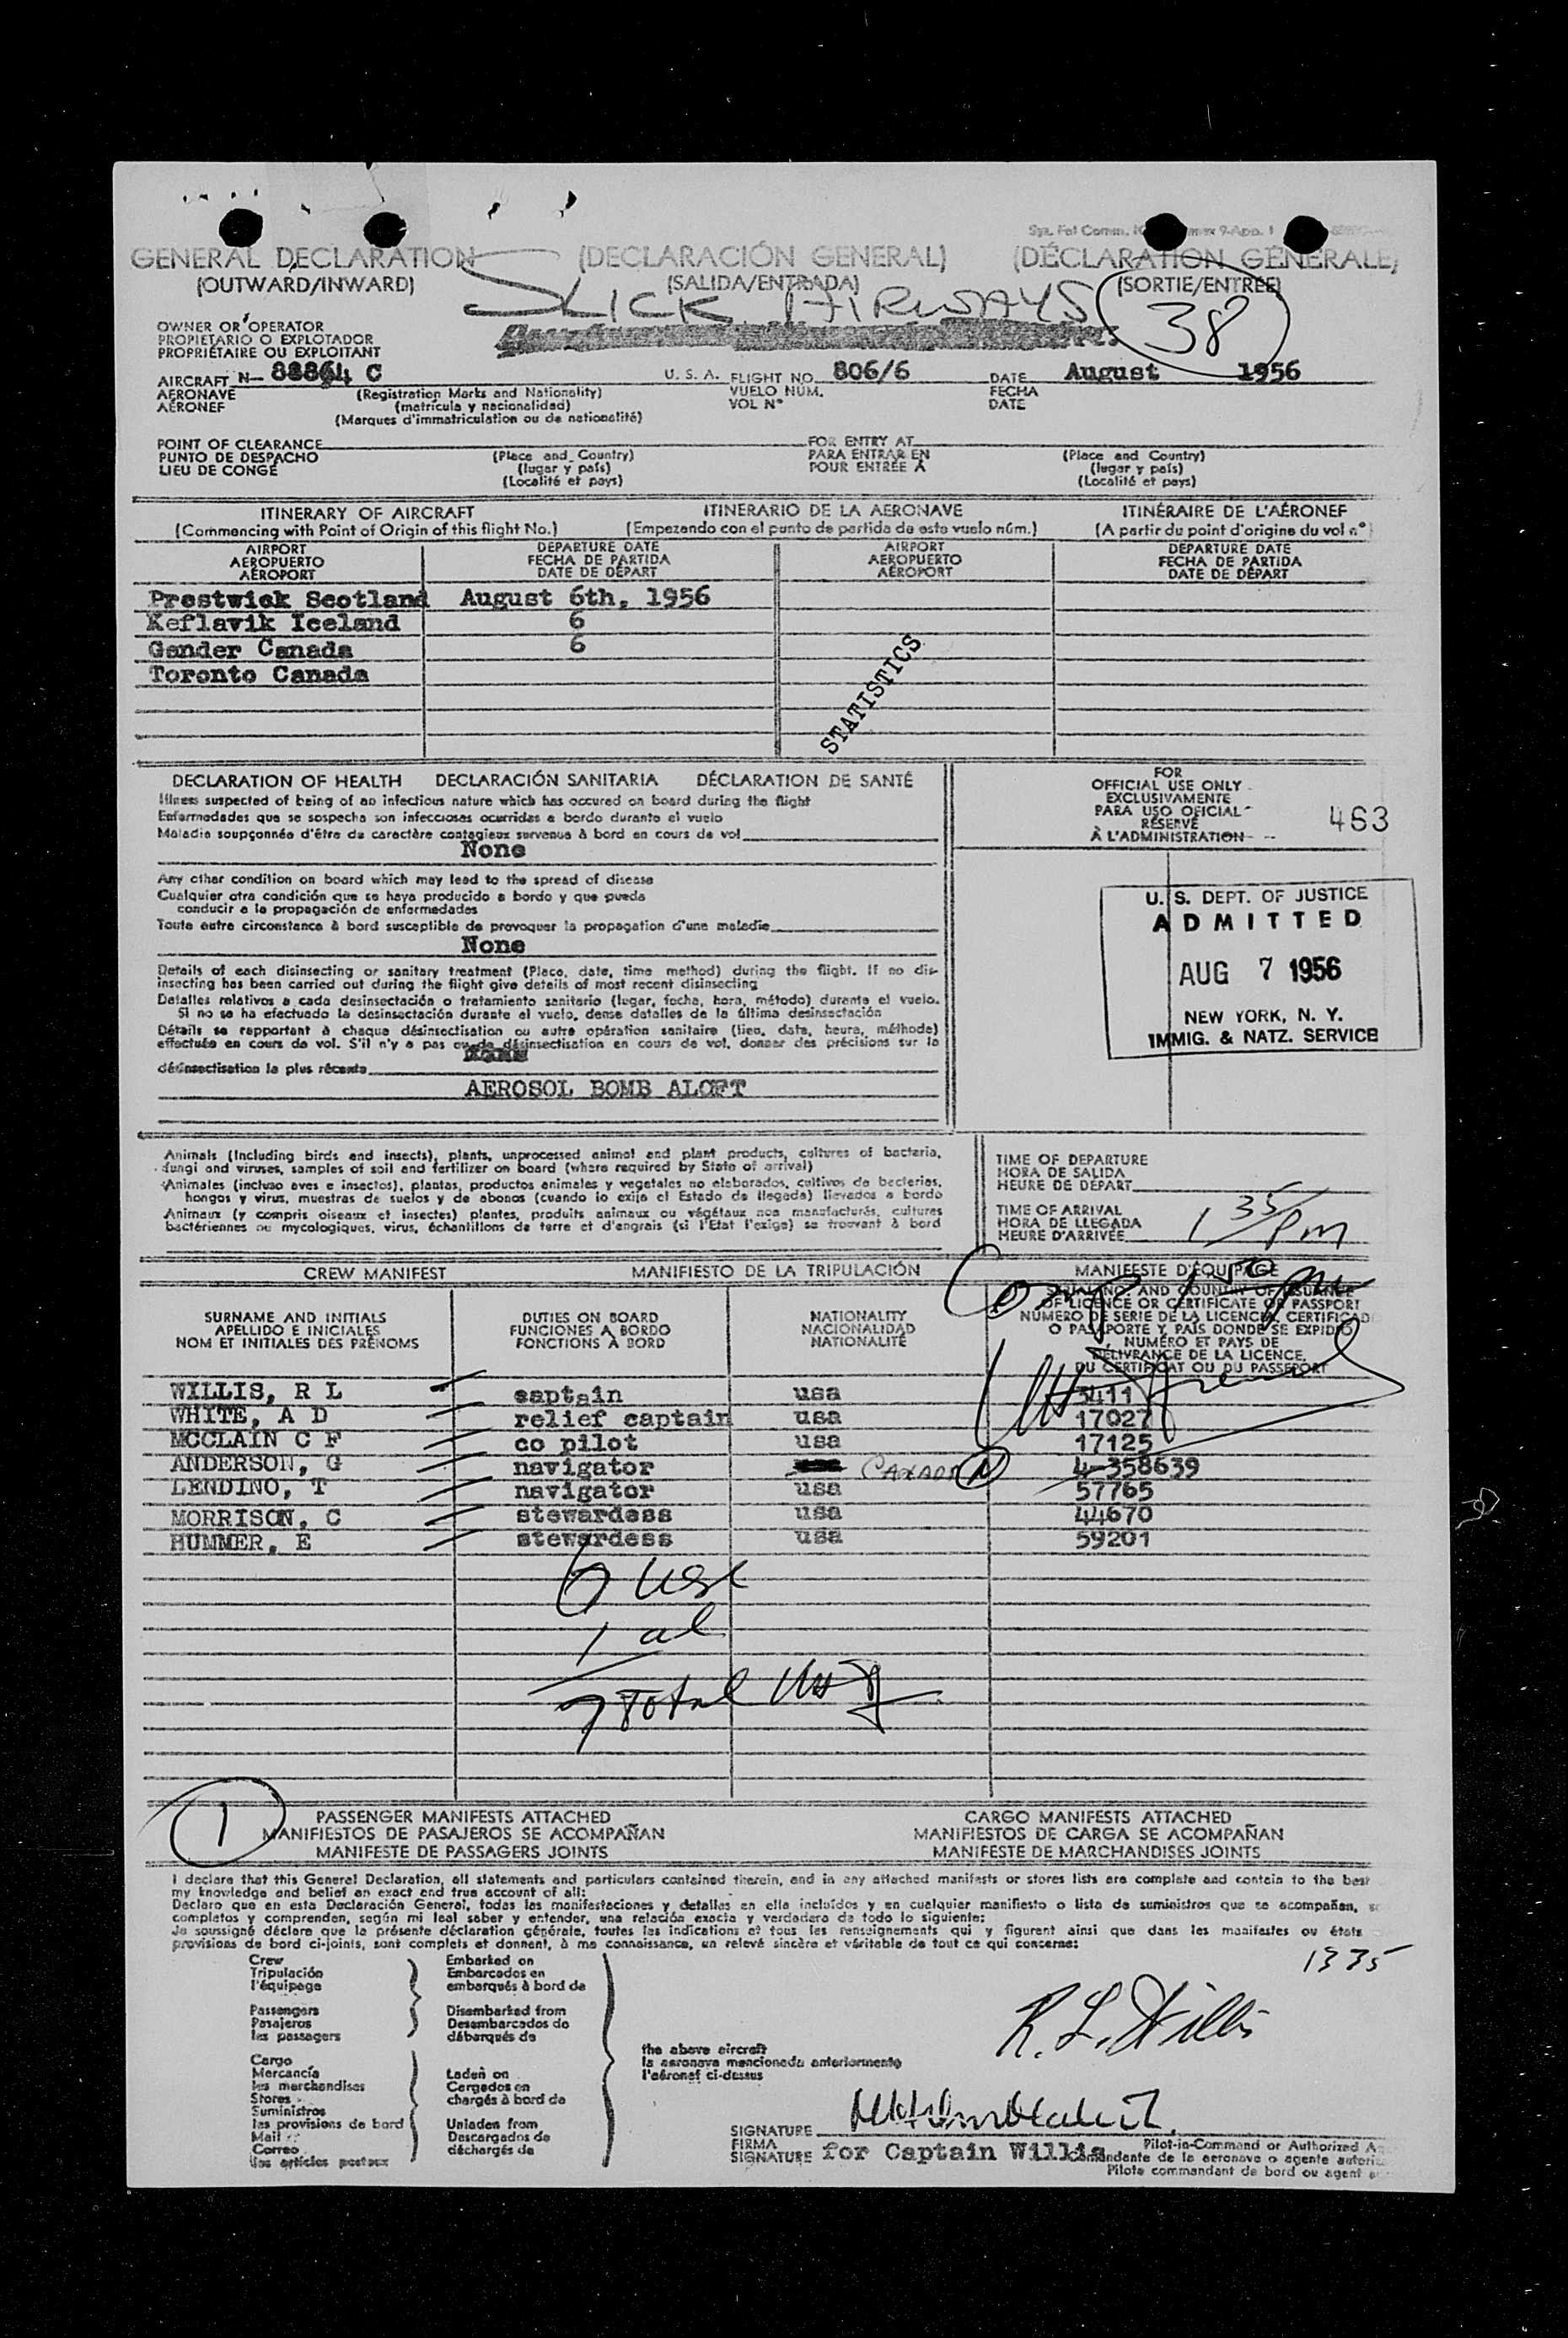 GENERAL DECLARATION (DECLARACIÓN GENERAL) (DÉCLARATION GÉNÉRALE)
(OUTWARD/INWARD) (SALIDA/ENTRADA) (SORTIE/ENTRÉE)
SLICK AIRWAYS 38
OWNER OR OPERATOR
PROPIETARIO O EXPLOTADOR
PROPRIÉTAIRE OU EXPLOITANT
AIRCRAFT N- 88864 C U. S. A. FLIGHT NO. 806/6 DATE August 1956
AERONAVE (Registration Marks and Nationality) VUELO NÚM. FECHA
AÉRONEF (matrícula y nacionalidad) VOL N° DATE
(Marques d'immatriculation ou de nationalité)
POINT OF CLEARANCE FOR ENTRY AT
PUNTO DE DESPACHO (Place and Country) PARA ENTRAR EN (Place and Country)
LIEU DE CONGÉ (lugar y país) POUR ENTRÉE À (lugar y país)
(Localité et pays) (Localité et pays)
ITINERARY OF AIRCRAFT ITINERARIO DE LA AERONAVE ITINÉRAIRE DE L'AÉRONEF
(Commencing with Point of Origin of this flight No.) (Empezando con el punto de partida de este vuelo núm.) (A partir du point d'origine du vol n°)
AIRPORT DEPARTURE DATE AIRPORT DEPARTURE DATE
AEROPUERTO FECHA DE PARTIDA AEROPUERTO FECHA DE PARTIDA
AÉROPORT DATE DE DÉPART AÉROPORT DATE DE DÉPART
Prestwick Scotland August 6th, 1956
Keflavik Iceland 6
Gander Canada 6
Toronto Canada
STATISTICS
DECLARATION OF HEALTH DECLARACIÓN SANITARIA DÉCLARATION DE SANTÉ
Illness suspected of being of an infectious nature which has occured on board during the flight
Enfermedades que se sospecha son infecciosas ocurridas a bordo durante el vuelo
Maladie soupçonnée d'être de caractère contagieux survenue à bord en cours de vol
None
Any other condition on board which may lead to the spread of disease
Cualquier otra condición que se haya producido a bordo y que pueda
conducir a la propagación de enfermedades
Toute autre circonstance à bord susceptible de provoquer la propagation d'une maladie
None
Details of each disinsecting or sanitary treatment (Place, date, time method) during the flight. If no dis-
insecting has been carried out during the flight give details of most recent disinsecting
Detalles relativos a cada desinsectación o tratamiento sanitario (lugar, fecha, hora, método) durante el vuelo.
Si no se ha efectuado la desinsectación durante el vuelo, dense detalles de la última desinsectación
Détails se rapportant à chaque désinsectisation ou autre opération sanitaire (lieu, date, heure, méthode)
effectuée en cours de vol. S'il n'y a pas eu de désinsectisation en cours de vol, donner des précisions sur la
désinsectisation la plus récente
AEROSOL BOMB ALOFT
FOR
OFFICIAL USE ONLY
EXCLUSIVAMENTE
PARA USO OFICIAL
RÉSERVÉ
À L'ADMINISTRATION
463
U. S. DEPT. OF JUSTICE
ADMITTED
AUG 7 1956
NEW YORK, N. Y.
IMMIG. & NATZ. SERVICE
Animals (Including birds and insects), plants, unprocessed animal and plant products, cultures of bacteria,
fungi and viruses, samples of soil and fertilizer on board (where required by State of arrival)
Animales (incluso aves e insectos), plantas, productos animales y vegetales no elaborados, cultivos de bacterias,
hongos y virus, muestras de suelos y de abonos (cuando lo exija el Estado de llegada) llevados a bordo
Animaux (y compris oiseaux et insectes) plantes, produits animaux ou végétaux non manufacturés, cultures
bactériennes ou mycologiques, virus, échantillons de terre et d'engrais (si l'Etat l'exige) se trouvant à bord
TIME OF DEPARTURE
HORA DE SALIDA
HEURE DE DÉPART
TIME OF ARRIVAL
HORA DE LLEGADA
HEURE D'ARRIVÉE
1 35 Pm
Comp 1 50 pm
CREW MANIFEST MANIFIESTO DE LA TRIPULACIÓN MANIFESTE D'ÉQUIPAGE
SURNAME AND INITIALS DUTIES ON BOARD NATIONALITY SERIAL NO. AND COUNTRY OF ISSUANCE
APELLIDO E INICIALES FUNCIONES A BORDO NACIONALIDAD OF LICENCE OR CERTIFICATE OR PASSPORT
NOM ET INITIALES DES PRÉNOMS FONCTIONS À BORD NATIONALITÉ NÚMERO DE SERIE DE LA LICENCIA, CERTIFICADO
O PASAPORTE Y PAÍS DONDE SE EXPIDIÓ
NUMÉRO ET PAYS DE
DÉLIVRANCE DE LA LICENCE,
DU CERTIFICAT OU DU PASSEPORT
WILLIS, R L captain usa 3411
WHITE, A D relief captain usa 17027
MCCLAIN C F co pilot usa 17125
ANDERSON, G navigator CANADA N 4-358639
LENDINO, T navigator usa 57765
MORRISON, C stewardess usa 44670
HUMMER, E stewardess usa 59201
6 usc
1 al
7 Total
1
PASSENGER MANIFESTS ATTACHED CARGO MANIFESTS ATTACHED
MANIFIESTOS DE PASAJEROS SE ACOMPAÑAN MANIFIESTOS DE CARGA SE ACOMPAÑAN
MANIFESTE DE PASSAGERS JOINTS MANIFESTE DE MARCHANDISES JOINTS
I declare that this General Declaration, all statements and particulars contained therein, and in any attached manifests or stores lists are complete and contain to the best
my knowledge and belief an exact and true account of all:
Declaro que en esta Declaración General, todas las manifestaciones y detalles en ella incluidos y en cualquier manifiesto o lista de suministros que se acompañan,
completos y comprenden, según mi leal saber y entender, una relación exacta y verdadera de todo lo siguiente:
Je soussigné déclare que la présente déclaration générale, toutes les indications et tous les renseignements qui y figurent ainsi que dans les manifestes ou états
provisions de bord ci-joints, sont complets et donnent, à ma connaissance, un relevé sincère et véritable de tout ce qui concerne:
1335
Crew Embarked on
Tripulación Embarcados en
l'équipage embarqués à bord de
Passengers Disembarked from
Pasajeros Desembarcados de
les passagers débarqués de
the above aircraft
la aeronave mencionada anteriormente
l'aéronef ci-dessus
Cargo
Mercancía Laden on
les marchandises Cargados en
Stores chargés à bord de
Suministros
les provisions de bord Unladen from
Mail Descargados de
Correo déchargés de
les articles postaux
R. L. Willis
SIGNATURE
FIRMA
SIGNATURE for Captain Willis
Pilot-in-Command or Authorized
Comandante de la aeronave o agente
Pilote commandant de bord ou agent